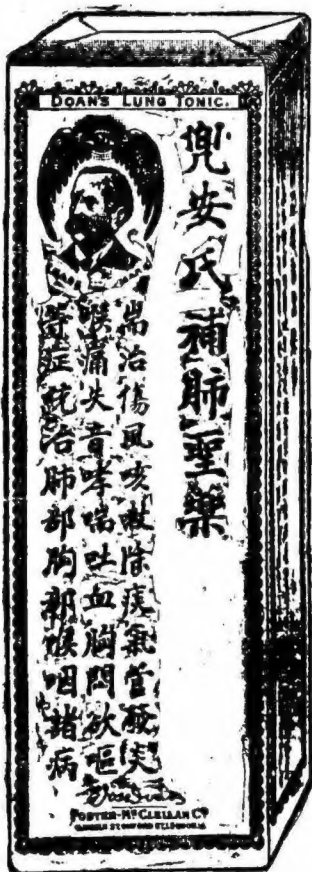 DOAN'S LUNG TONIC.
兜安氏補肺聖藥
耑治傷風咳嗽除痰氣管發炎
喉痛失音哮喘吐血胸悶欲嘔
等症統治肺部胸部喉咽諸病
FOSTER-McCLELLAN CO